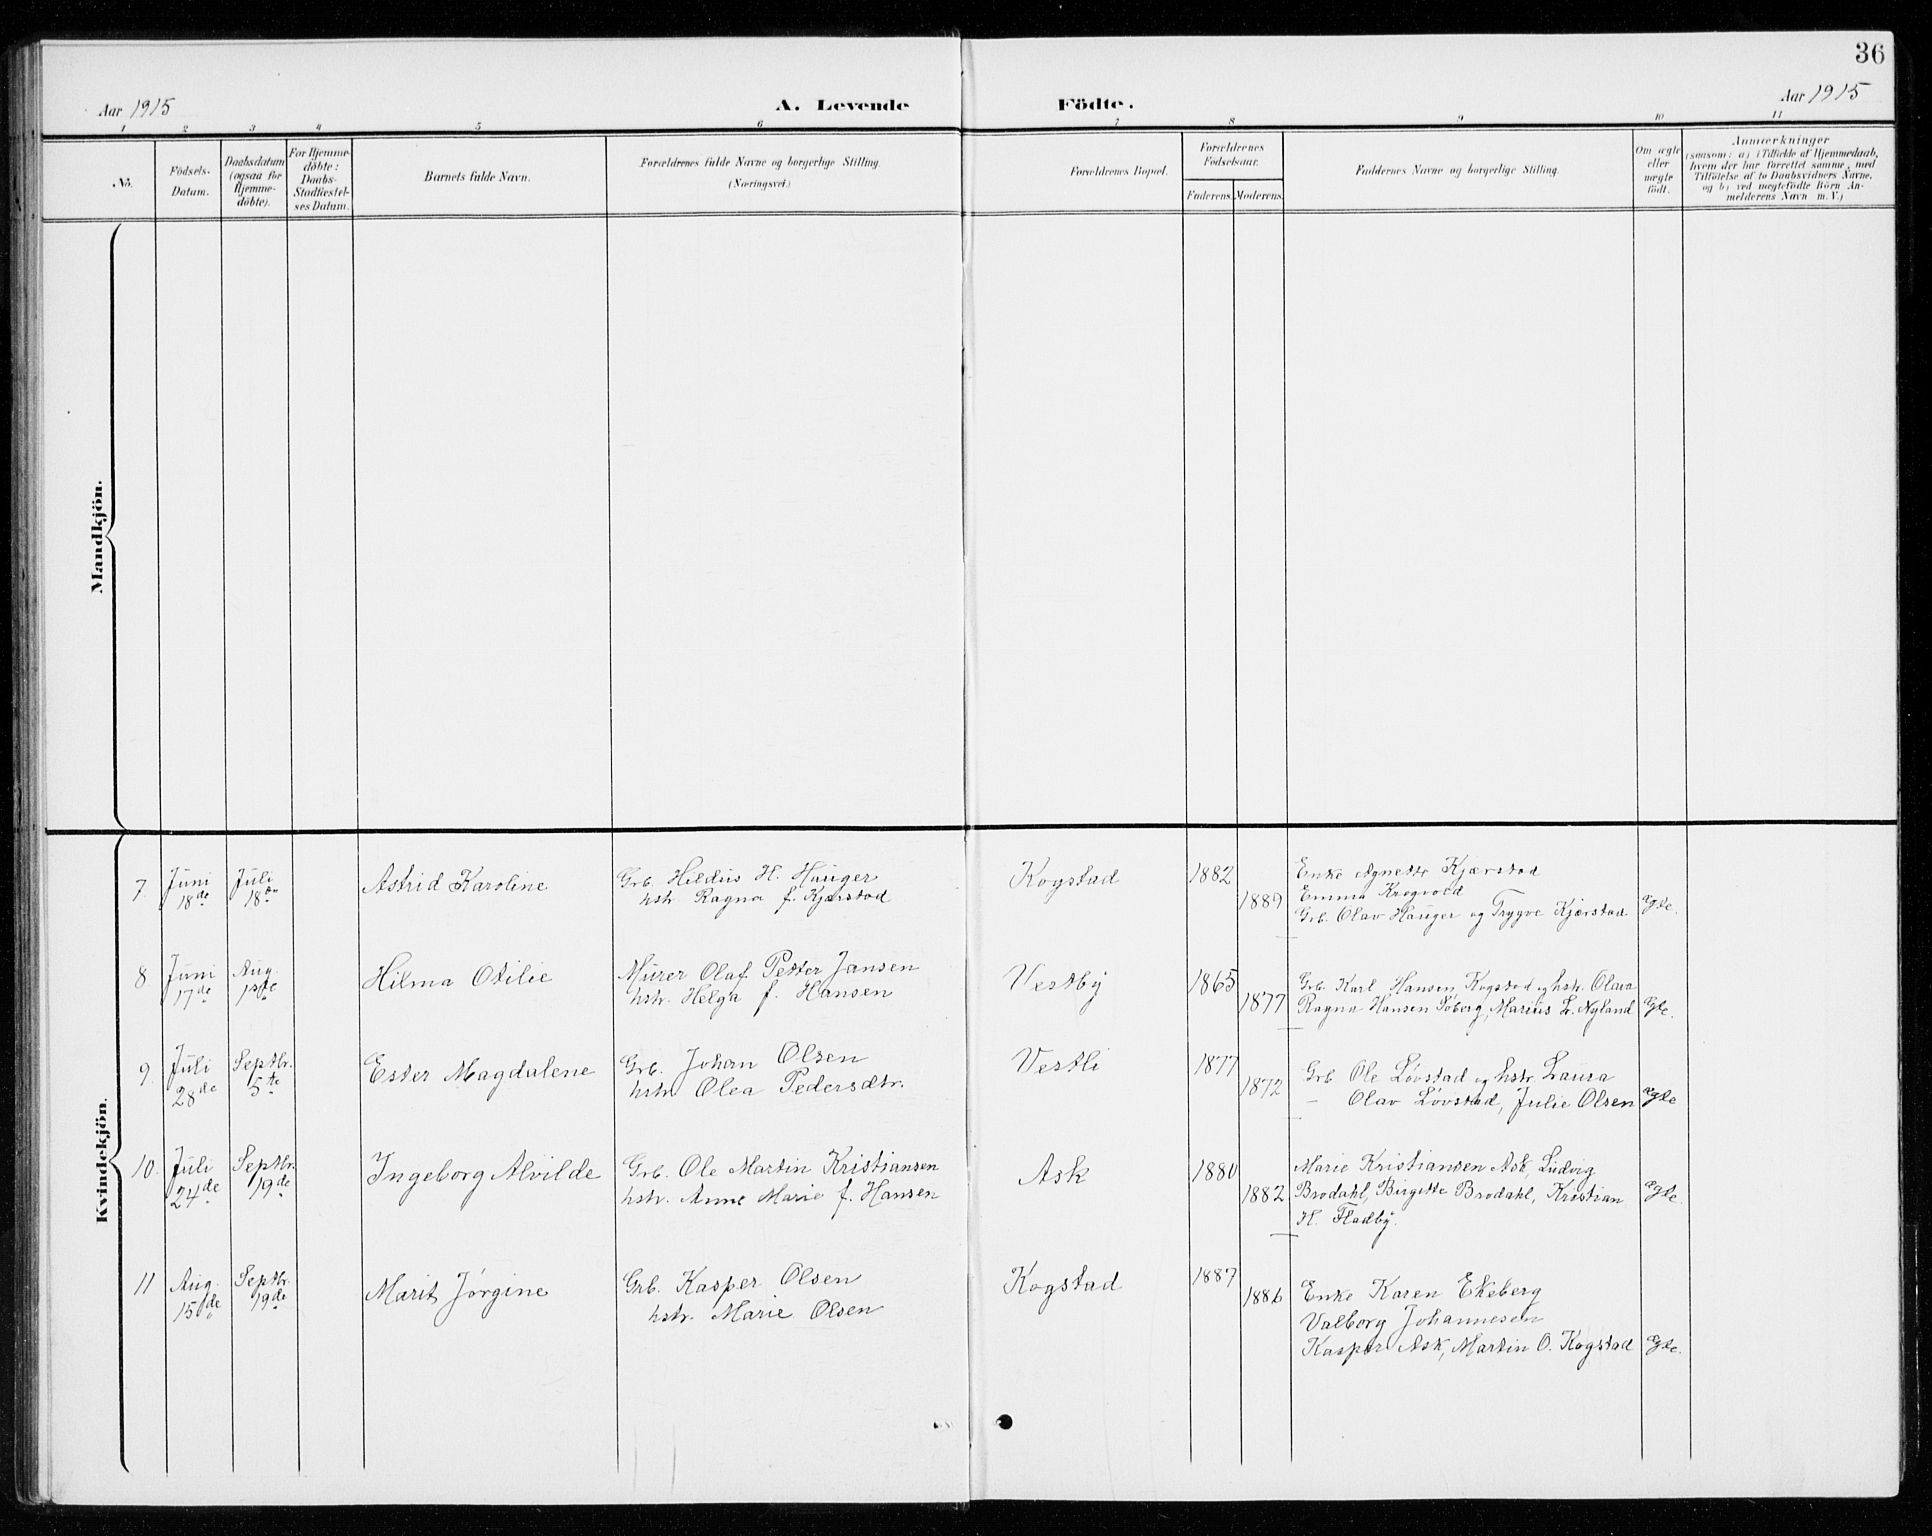 36
Aar 1915
A. Levende
Födte.
Aar 1915
1 2 3 4 5 6 7 8 9 10 11
No.
Födsels-
Datum.
Daabsdatum
(ogsaa for
Hjemme-
döbte).
For Hjemme-
döbte:
Daabs-
Stadfæstel-
ses Datum.
Barnets fulde Navn.
Forældrenes fulde Navne og borgerlige Stilling.
(Næringsvei.)
Forældrenes Bopæl.
Forældrenes
Födselsaar.
Faderens.
Moderens.
Faddernes Navne og borgerlige Stilling.
Om ægte
eller
uægte
födt.
Anmærkninger
(saasom: a) i Tilfælde af Hjemmedaab,
hvem der har forrettet samme, med
Tilföielse af to Daabsvidners Navne,
og b) ved uægtefödte Börn An-
melderens Navn m. V.)
Mandkjön.
Kvindekjön.
7.
Juni
18de
Juli
18de
Astrid Karoline
Grb. Hildus H. Hauger
hstr. Ragna f. Kjærstad
Kogstad
1882
1889
Enke Agnethe Kjærstad
Emma Krogvold
Grb. Olav Hauger og Trygve Kjærstad
ægte.
8
Juni
17de
Aug.
1ste
Hilma Otilie
Murer Olaf Petter Jansen
hstr. Helga f. Hansen
Vestby
1865
1877
Grb. Karl Hansen Kogstad og hstr. Olava
Ragna Hansen Søberg, Marius L. Nyland
Gte.
9.
Juli
28de
Septbr.
5te
Ester Magdalene
Grb. Johan Olsen
hstr. Olea Pedersdtr.
Vestli
1877
1872
Grb. Ole Løvstad og hstr. Laura
— Olav Løvstad, Julie Olsen
ægte
10.
Juli
24de
Septbr.
19de
Ingeborg Alvilde
Grb. Ole Martin Kristiansen
hstr. Anne Marie f. Hansen
Ask
1880
1882
Marie Kristiansen Ask, Ludvig
Brodahl, Birgitte Brodahl, Kristian
H. Fladby.
ægte.
11
Aug.
15de
Septbr.
19de
Marit Jørgine
Grb. Kasper Olsen
hstr. Marie Olsen
Kogstad
1887
1886
Enke Karen Ekeberg
Valborg Johannesen
Kasper Ask, Martin O. Kogstad
ægte.